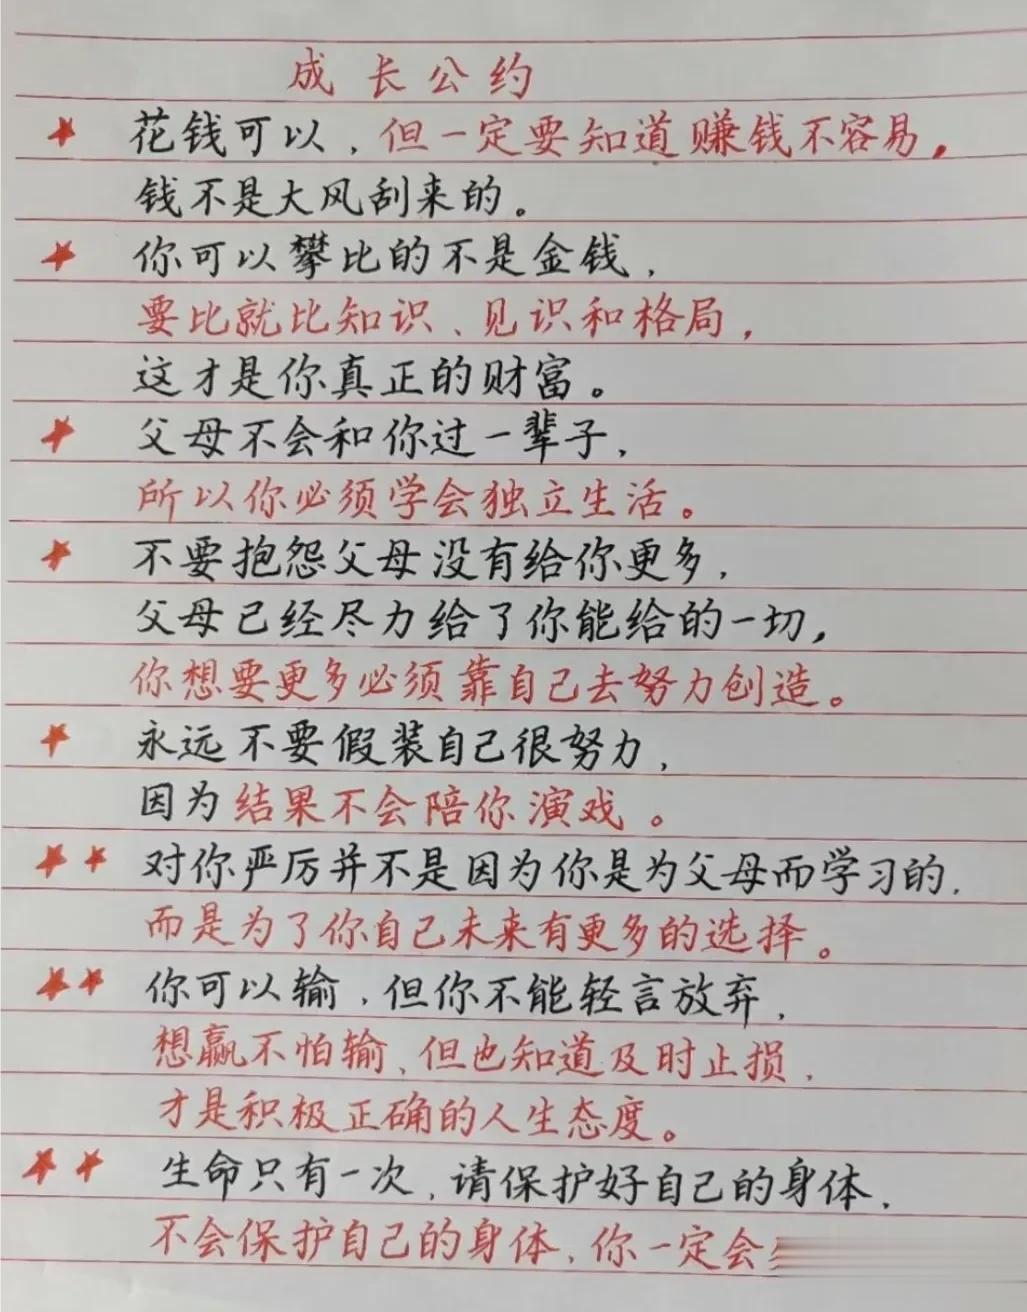 成长公约
★ 花钱可以，但一定要知道赚钱不容易，
钱不是大风刮来的。
★ 你可以攀比的不是金钱，
要比就比知识、见识和格局，
这才是你真正的财富。
★ 父母不会和你过一辈子，
所以你必须学会独立生活。
★ 不要抱怨父母没有给你更多，
父母已经尽力给了你能给的一切，
你想要更多必须靠自己去努力创造。
★ 永远不要假装自己很努力，
因为结果不会陪你演戏。
★★ 对你严厉并不是因为你是为父母而学习的，
而是为了你自己未来有更多的选择。
★★ 你可以输，但你不能轻言放弃，
想赢不怕输、但也知道及时止损，
才是积极正确的人生态度。
★★ 生命只有一次，请保护好自己的身体，
不会保护自己的身体，你一定会